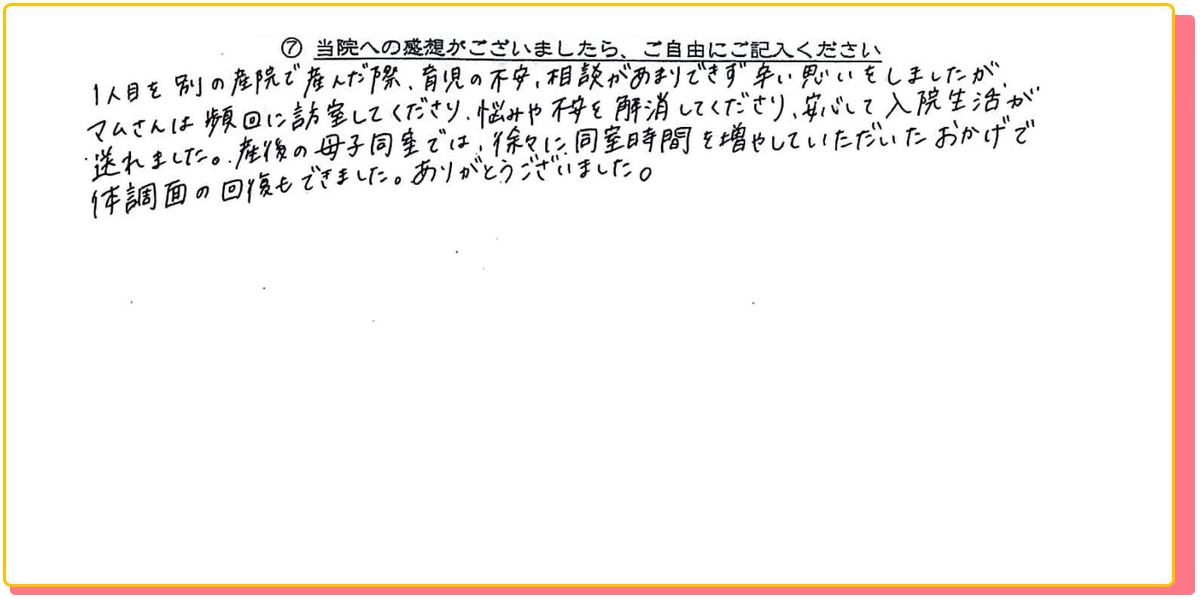 ⑦ 当院への感想がございましたら、ご自由にご記入ください
1人目を別の産院で産んだ際、育児の不安、相談があまりできず辛い思いをしましたが、
マムさんは頻回に訪室してくださり、悩みや不安を解消してくださり、安心して入院生活が
送れました。産後の母子同室では、徐々に同室時間を増やしていただいたおかげで
体調面の回復もできました。ありがとうございました。